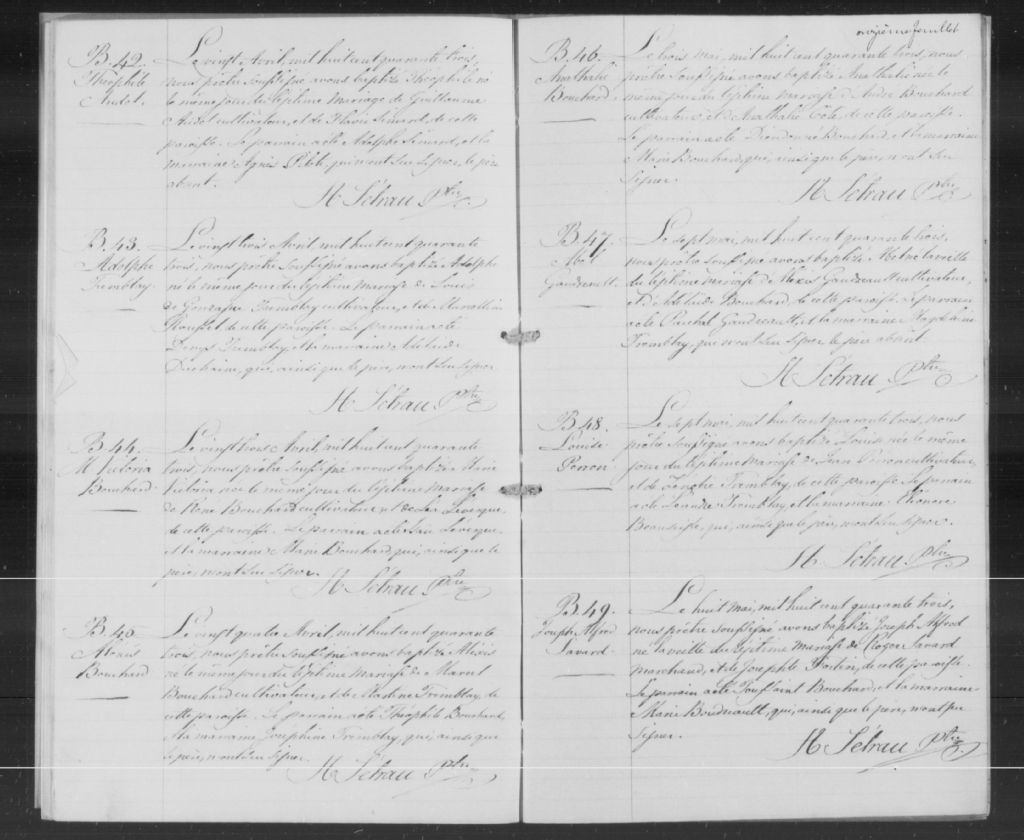 B. 42.
Théophile
Audet.
Le vingt Avril, mil huit cent quarante trois,
nous prêtre soussigné avons baptisé Théophile né
le même jour du légitime mariage de Guillaume
Audet cultivateur, et de Flavie Simard, de cette
paroisse. Le parrain a été Adolphe Simard, et la
marraine Agnès qui n'ont su signer, le père
absent.
Ptre
B. 43.
Adolphe
Tremblay
Le vingt trois Avril, mil huit cent quarante
trois, nous prêtre soussigné avons baptisé Adolphe
né le même jour du légitime mariage de Louis
de Gonzague Tremblay cultivateur, et de
de cette paroisse. Le parrain a été
Denys Tremblay, et la marraine Adélaïde
Duchaine, qui, ainsi que le père, n'ont su signer
Ptre
B. 44.
M. Victoria
Bouchard
Le vingt trois Avril, mil huit cent quarante
trois, nous prêtre soussigné avons baptisé Marie
Victoria née le même jour du légitime mariage
de Bouchard cultivateur et de Levesque,
de cette paroisse. Le parrain a été Levesque,
et la marraine Marie Bouchard, qui, ainsi que le
père, n'ont su signer.
Ptre
B. 45
Alexis
Bouchard
Le vingt quatre Avril, mil huit cent quarante
trois, nous prêtre soussigné avons baptisé Alexis
né le même jour du légitime mariage de Marcel
Bouchard cultivateur, et de Martine Tremblay, de
cette paroisse. Le parrain a été Théophile Bouchard,
et la marraine Josephine Tremblay, qui, ainsi que
le père, n'ont su signer.
Ptre
onzième feuillet
B. 46.
Anathalie
Bouchard
Le trois mai, mil huit cent quarante trois, nous
prêtre soussigné avons baptisé Anathalie née le
même jour du légitime mariage d'André Bouchard
cultivateur et d'Anathalie Côté, de cette paroisse.
Le parrain a été Dieudonné Bouchard, et la marraine
Marie Bouchard, qui, ainsi que le père, n'ont su
signer.
Ptre
B. 47.
Abel
Gaudreault
Le sept mai, mil huit cent quarante trois,
nous prêtre soussigné avons baptisé Abel né la veille
du légitime mariage de Gaudreault cultivateur,
et d'Adélaïde Bouchard, de cette paroisse. Le parrain
a été Paschal Gaudreault, et la marraine Magdeleine
Tremblay, qui n'ont su signer le père absent.
Ptre
B. 48.
Louise
Perron
Le sept mai, mil huit cent quarante trois, nous
prêtre soussigné avons baptisé Louise née le même
jour du légitime mariage de Jean Perron cultivateur,
et de Tremblay, de cette paroisse. Le parrain
a été Léandre Tremblay, et la marraine Eléonore
qui, ainsi que le père, n'ont su signer.
Ptre
B. 49.
Joseph Alfred
Savard
Le huit mai, mil huit cent quarante trois,
nous prêtre soussigné avons baptisé Joseph Alfred
né la veille du légitime mariage de Roger Savard
marchand, et de Josephte Fortin, de cette paroisse.
Le parrain a été Toussaint Bouchard, et la marraine
Marie Boudreault, qui, ainsi que le père, n'ont pu
signer.
Ptre